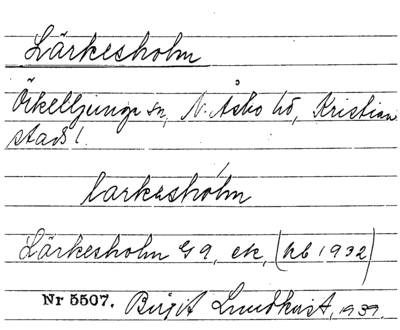 Lärkesholm
Örkelljunga sn, N. Åsbo hd, Kristian
stads l.
larkeshólm
Lärkesholm G 9, ek, (hb 1932)
Nr 5507. Birgit Lundkvist, 1937.